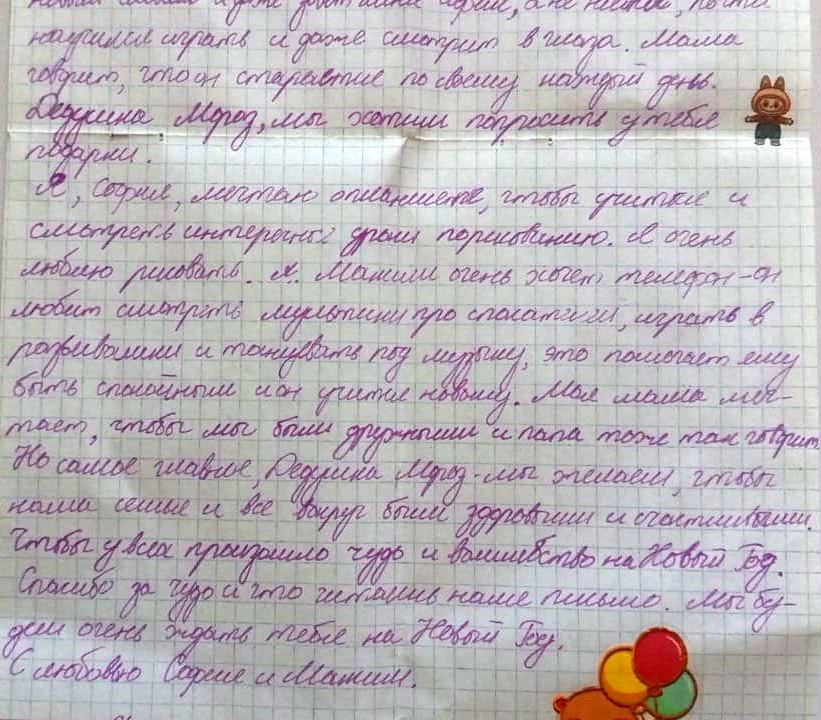 научился играть и даже смотрит в глаза. Мама
говорит, что он старается по своему каждый день.
Дедушка Мороз, мы хотим попросить у тебя
подарки.
Я, София, мечтаю о планшете, чтобы учиться и
смотреть интересные уроки по рисованию. Я очень
люблю рисовать. А Максим очень хочет телефон - он
любит смотреть мультики про спасателей, играть в
развивашки и танцевать под музыку, это помогает ему
быть спокойным и он учится новому. Моя мама меч-
тает, чтобы мы были дружными и папа тоже так говорит.
Но самое главное, Дедушка Мороз - мы желаем, чтобы
наша семья и все вокруг были здоровыми и счастливыми.
Чтобы у всех произошло чудо и волшебство на Новый Год.
Спасибо за чудо и что читаешь наше письмо. Мы бу-
дем очень ждать тебя на Новый Год.
С любовью София и Максим.